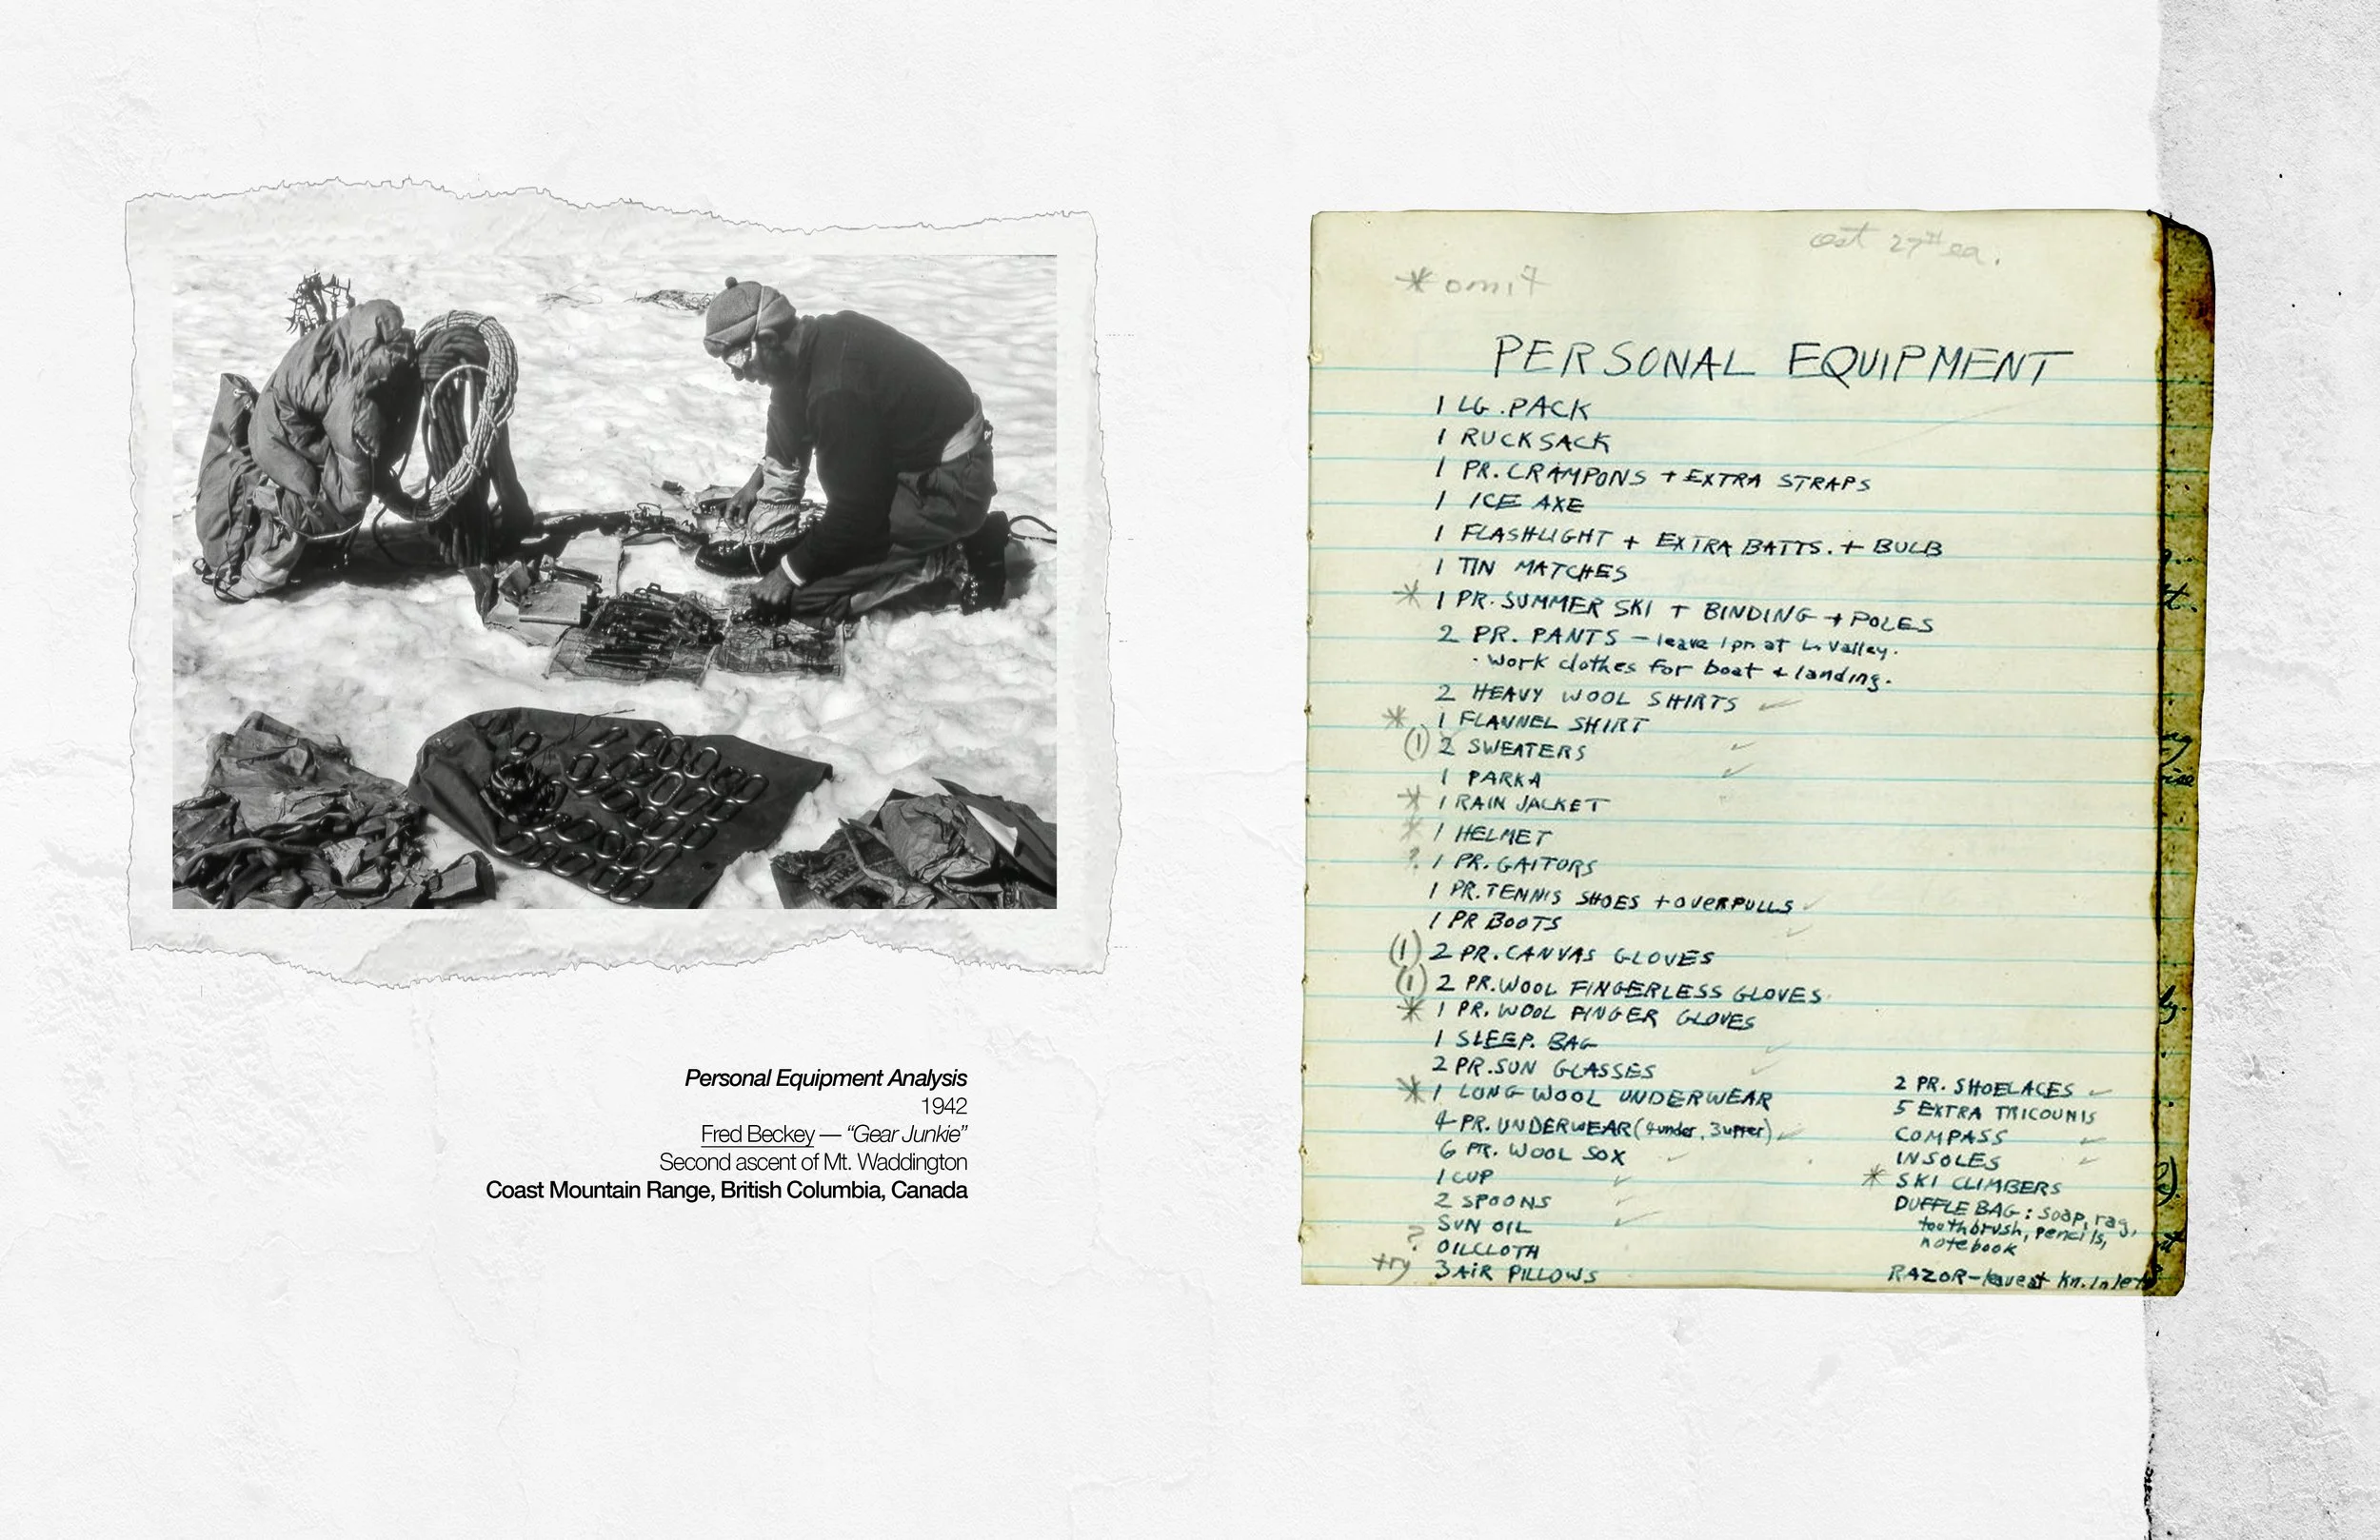 Personal Equipment Analysis
1942
Fred Beckey — “Gear Junkie”
Second ascent of Mt. Waddington
Coast Mountain Range, British Columbia, Canada
ea.
* omit
PERSONAL EQUIPMENT
1 LG. PACK
1 RUCKSACK
1 PR. CRAMPONS + EXTRA STRAPS
1 ICE AXE
1 FLASHLIGHT + EXTRA BATTS. + BULB
1 TIN MATCHES
* 1 PR. SUMMER SKI + BINDING + POLES
2 PR. PANTS – leave 1 pr. at L. Valley.
· Work clothes for boat + landing.
2 HEAVY WOOL SHIRTS ✓
* 1 FLANNEL SHIRT
(1) 2 SWEATERS ✓
1 PARKA ✓
* 1 RAIN JACKET
* 1 HELMET
? 1 PR. GAITORS
1 PR. TENNIS SHOES + OVERPULLS ✓
1 PR BOOTS ✓
(1) 2 PR. CANVAS GLOVES
(1) 2 PR. WOOL FINGERLESS GLOVES
* 1 PR. WOOL FINGER GLOVES
1 SLEEP. BAG ✓
2 PR. SUN GLASSES ✓
* 1 LONG WOOL UNDERWEAR
4 PR. UNDERWEAR (4 under, 3 upper) ✓
6 PR. WOOL SOX ✓
1 CUP ✓
2 SPOONS ✓
SUN OIL ✓
? OILCLOTH
try 3 AIR PILLOWS
2 PR. SHOELACES ✓
5 EXTRA TRICOUNIS
COMPASS ✓
INSOLES ✓
* SKI CLIMBERS
DUFFLE BAG: soap, rag,
toothbrush, pencils,
notebook
RAZOR – leave at Kn. Inlet